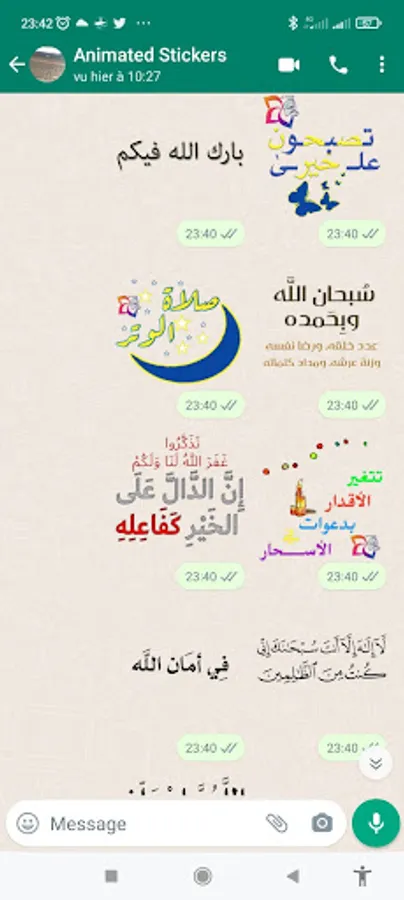 23:42
Animated Stickers
vu hier à 10:27
تصبحون
على خير
بارك الله فيكم
23:40
23:40
سُبحان اللَّه
وبِحَمده
عدد خلقه، ورضا نفسه
وزنة عرشه، ومداد كلماته
صلاة
الوتر
23:40
23:40
تتغير
الأقدار
بدعوات
الأسحار
تَذَكَّرُوا
غَفَرَ اللَّهُ لَنَا وَلَكُمْ
إِنَّ الدَّالَّ عَلَى
الخَيْرِ كَفَاعِلِهِ
23:40
23:40
لَآ إِلَٰهَ إِلَّآ أَنتَ سُبْحَٰنَكَ إِنِّى
كُنتُ مِنَ ٱلظَّٰلِمِينَ
فِي أمَان اللَّه
23:40
23:40
Message